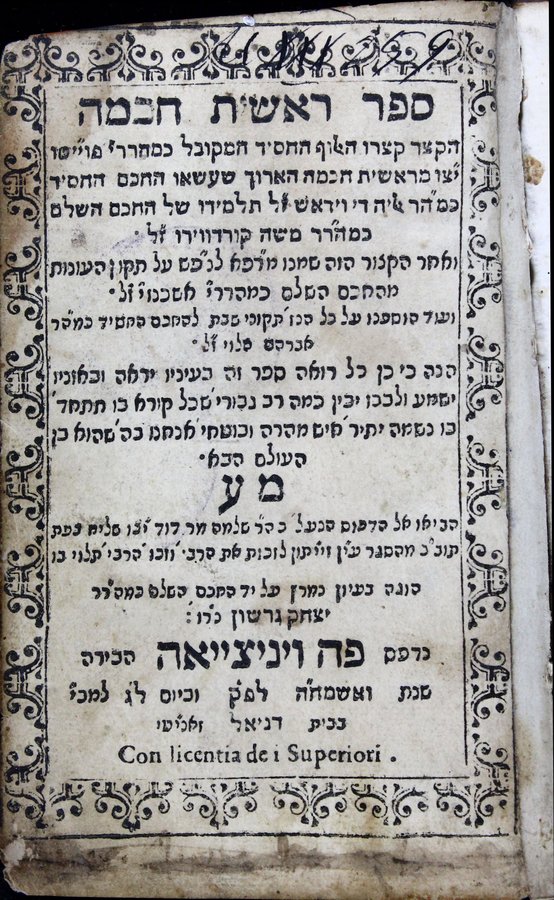 ספר ראשית חכמה
הקצר קצרו האלוף החסיד המקובל כמהרר״י פוייטו
יצו מראשית חכמה הארוך שעשאו החכם החסיד
כמ״הר אליה די וידאש ז״ל תלמידו של החכם השלם
כמה״רר משה קורדווירו ז״ל·
ואחר הקצור הזה שמנו מרפא לנפש על תקון העונות
מהחכם השלם כמהרר״י אשכנזי ז״ל·
ועוד הוספנו על כל הנז׳ תקוני שבת להחכם החסיד כמ״הר
אברהם הלוי ז״ל·
הנה כי כן כל רואה ספר זה בעיניו יראה ובאזניו
ישמע ולבבו יבין כמה רב גבורי׳ שכל קורא בו תתחד׳
בו נשמה יתיר׳ איש מהרה ובוטחי׳ אנחנו בה׳ שהוא בן
העולם הבא·
מ ע
הביאו אל הדפוס הנעל׳ כה״ר שלמה מר דוד יצו שליח צפת
תוב״ב מהסגר עין זייתון לזכות את הרבי׳ וזכו הרבי׳ תלוי בו
הוגה בעיון נמרץ על יד החכם השלם כמה״רר
יצחק גרשון נר״ו:
נדפס פה ויניצייאה הבירה
שנת ואשמח״ה לפ״ק וביום ל״ג למב״י
בבית דניאל זאניטי
Con licentia de i Superiori .